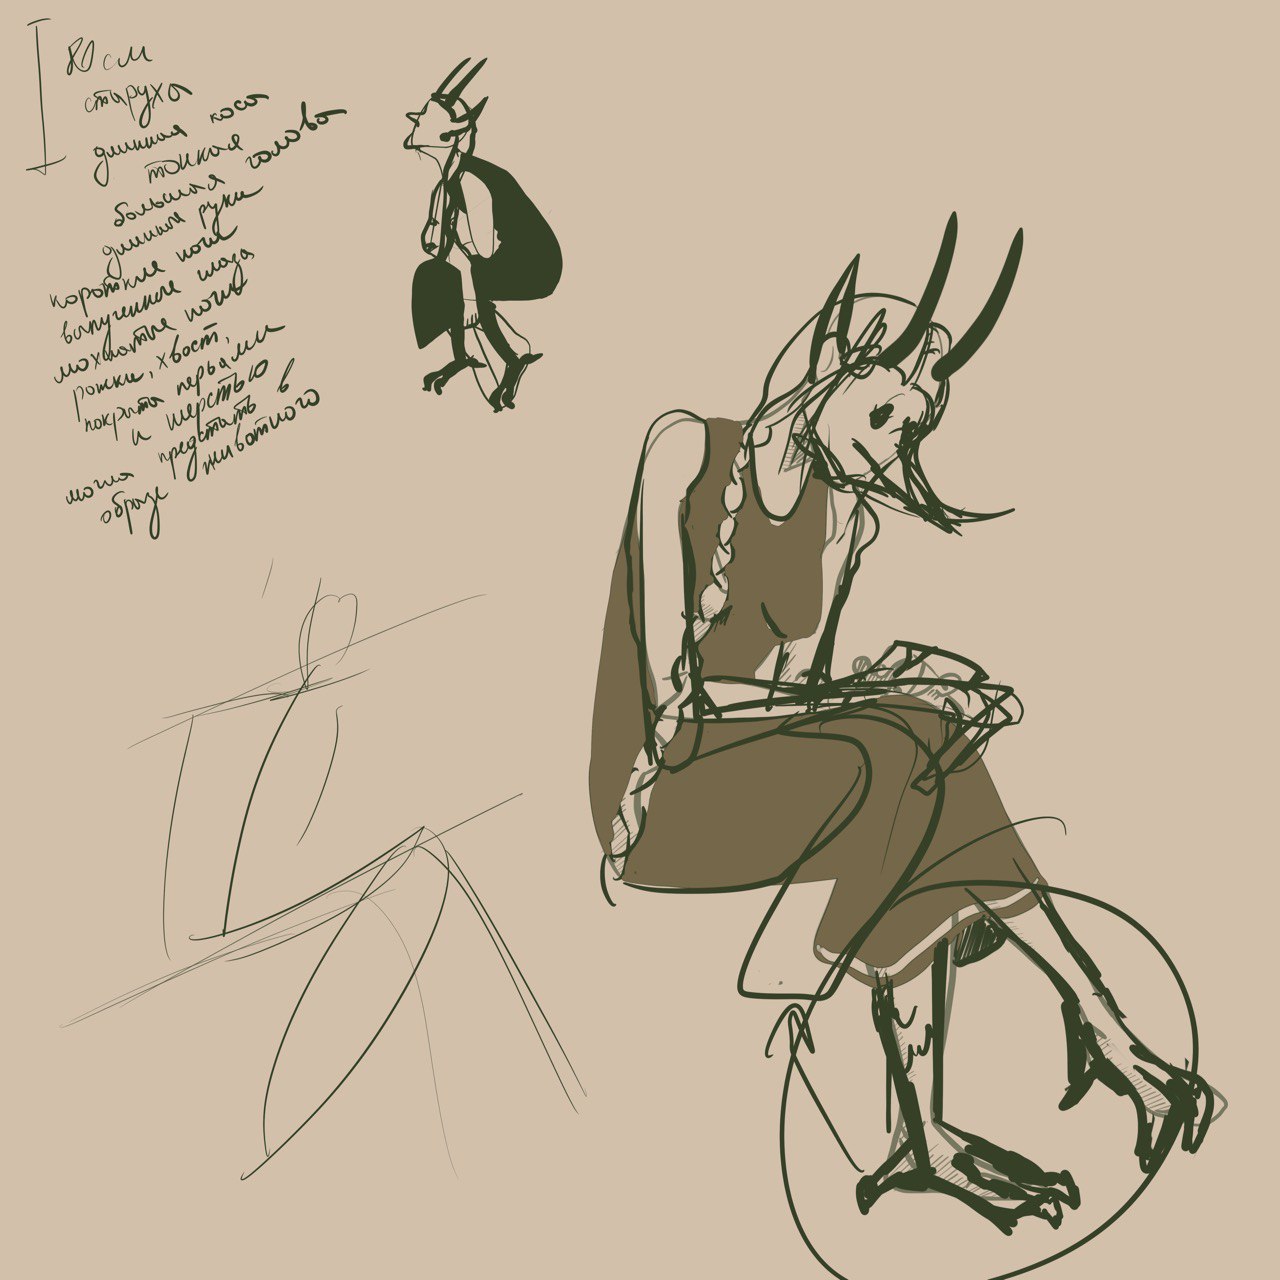 80 см
старуха
длинная коса
тонкая
большая голова
длинная руки
короткие ноги
выпученные глаза
мохнатые ноги
рожки, хвост,
покрыта перьями
и шерстью
могла предстать в
образе животного